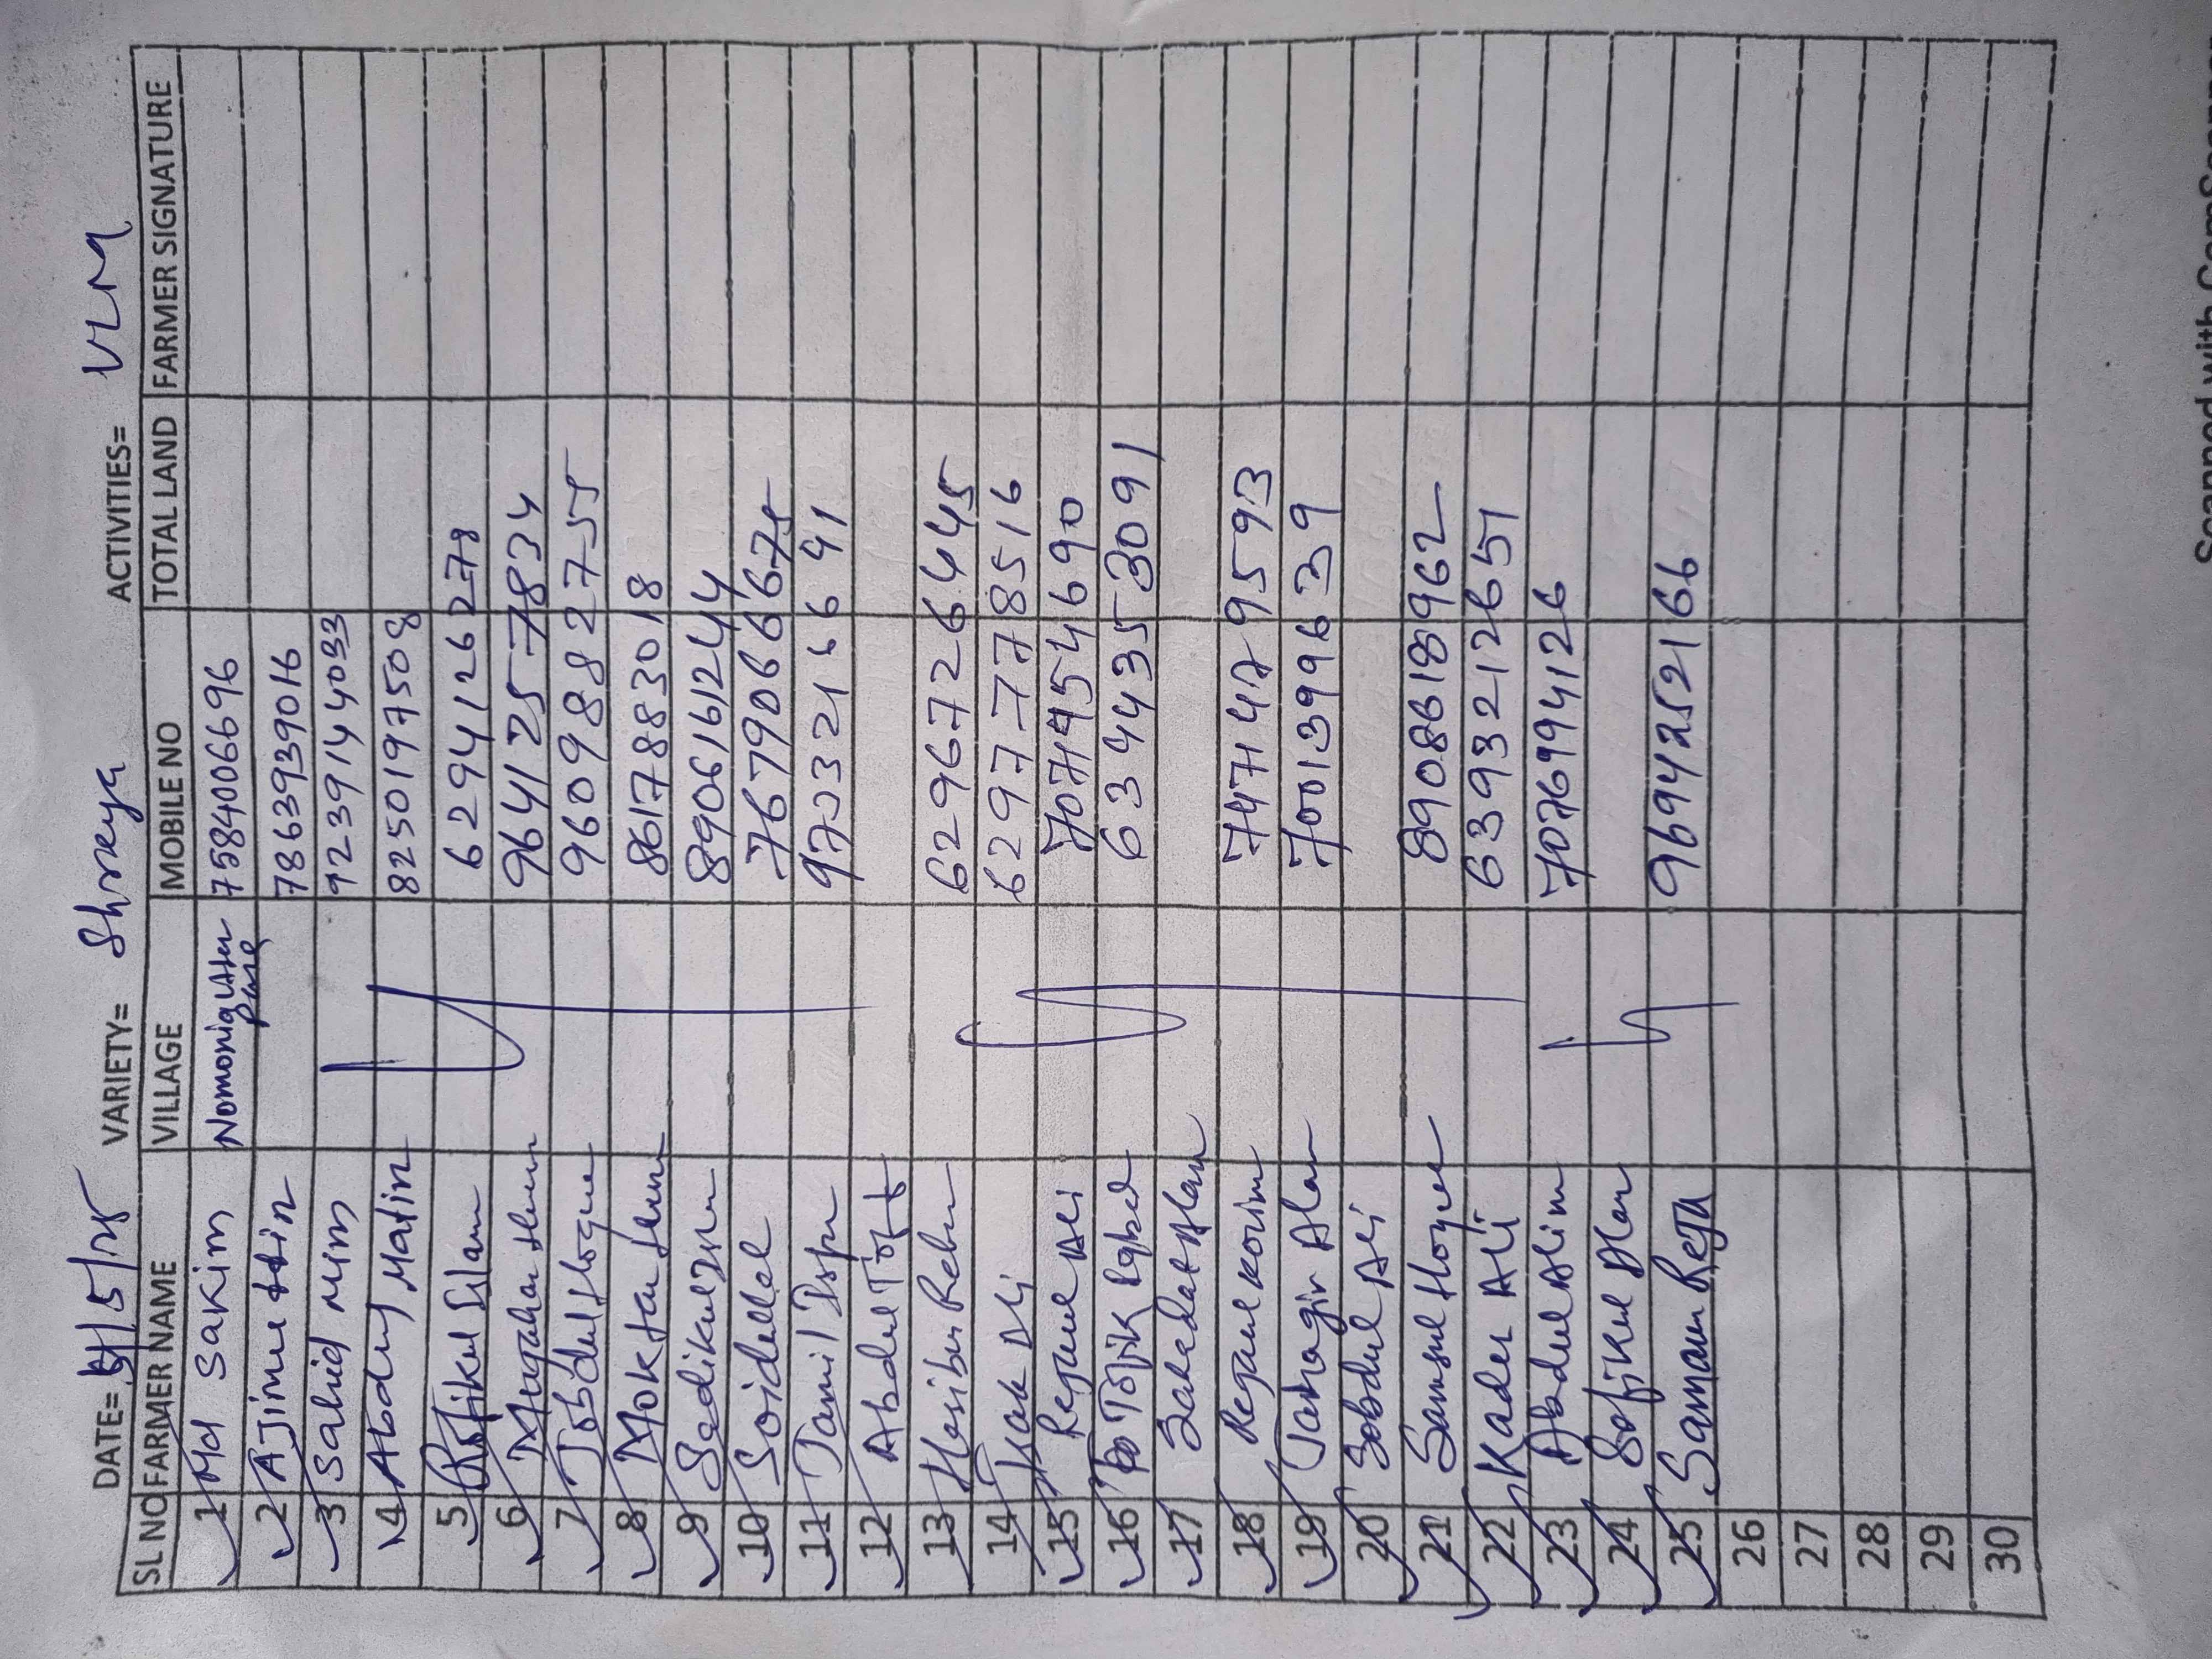 DATE= 5/25 VARIETY= Shreya ACTIVITIES= VLM
SL NO FARMER NAME VILLAGE MOBILE NO TOTAL LAND FARMER SIGNATURE
1 Md Sakim Nomoniq para 7584006696
2 Ajimuddin 7863939016
3 Sahid Mim 9239144033
4 Abdul Matin 8250197508
5 Rofikul Islam 6294126278
6 9641257834
7 Jobdul Hoque 9609882755
8 Moktar 8617883018
9 Sadikul 8906161244
10 Soidul 7679066675
11 Jamil 9733216641
12 Abdul
13 Hasibur 6296726445
14 Ali 6297778516
15 Rejaul Ali 7074954690
16 Tofik 6344353091
17 Alam
18 Rejaul Korim 7471479593
19 Jahagir Alam 7001399639
20 Sobdul Ali
21 Samsul Hoque 8908618962
22 Kader Ali 6393212651
23 Abdul Alim 7076994126
24 Sofikul Alam
25 Samaun Reja 9694252166
26
27
28
29
30
Scanned with CamScanner